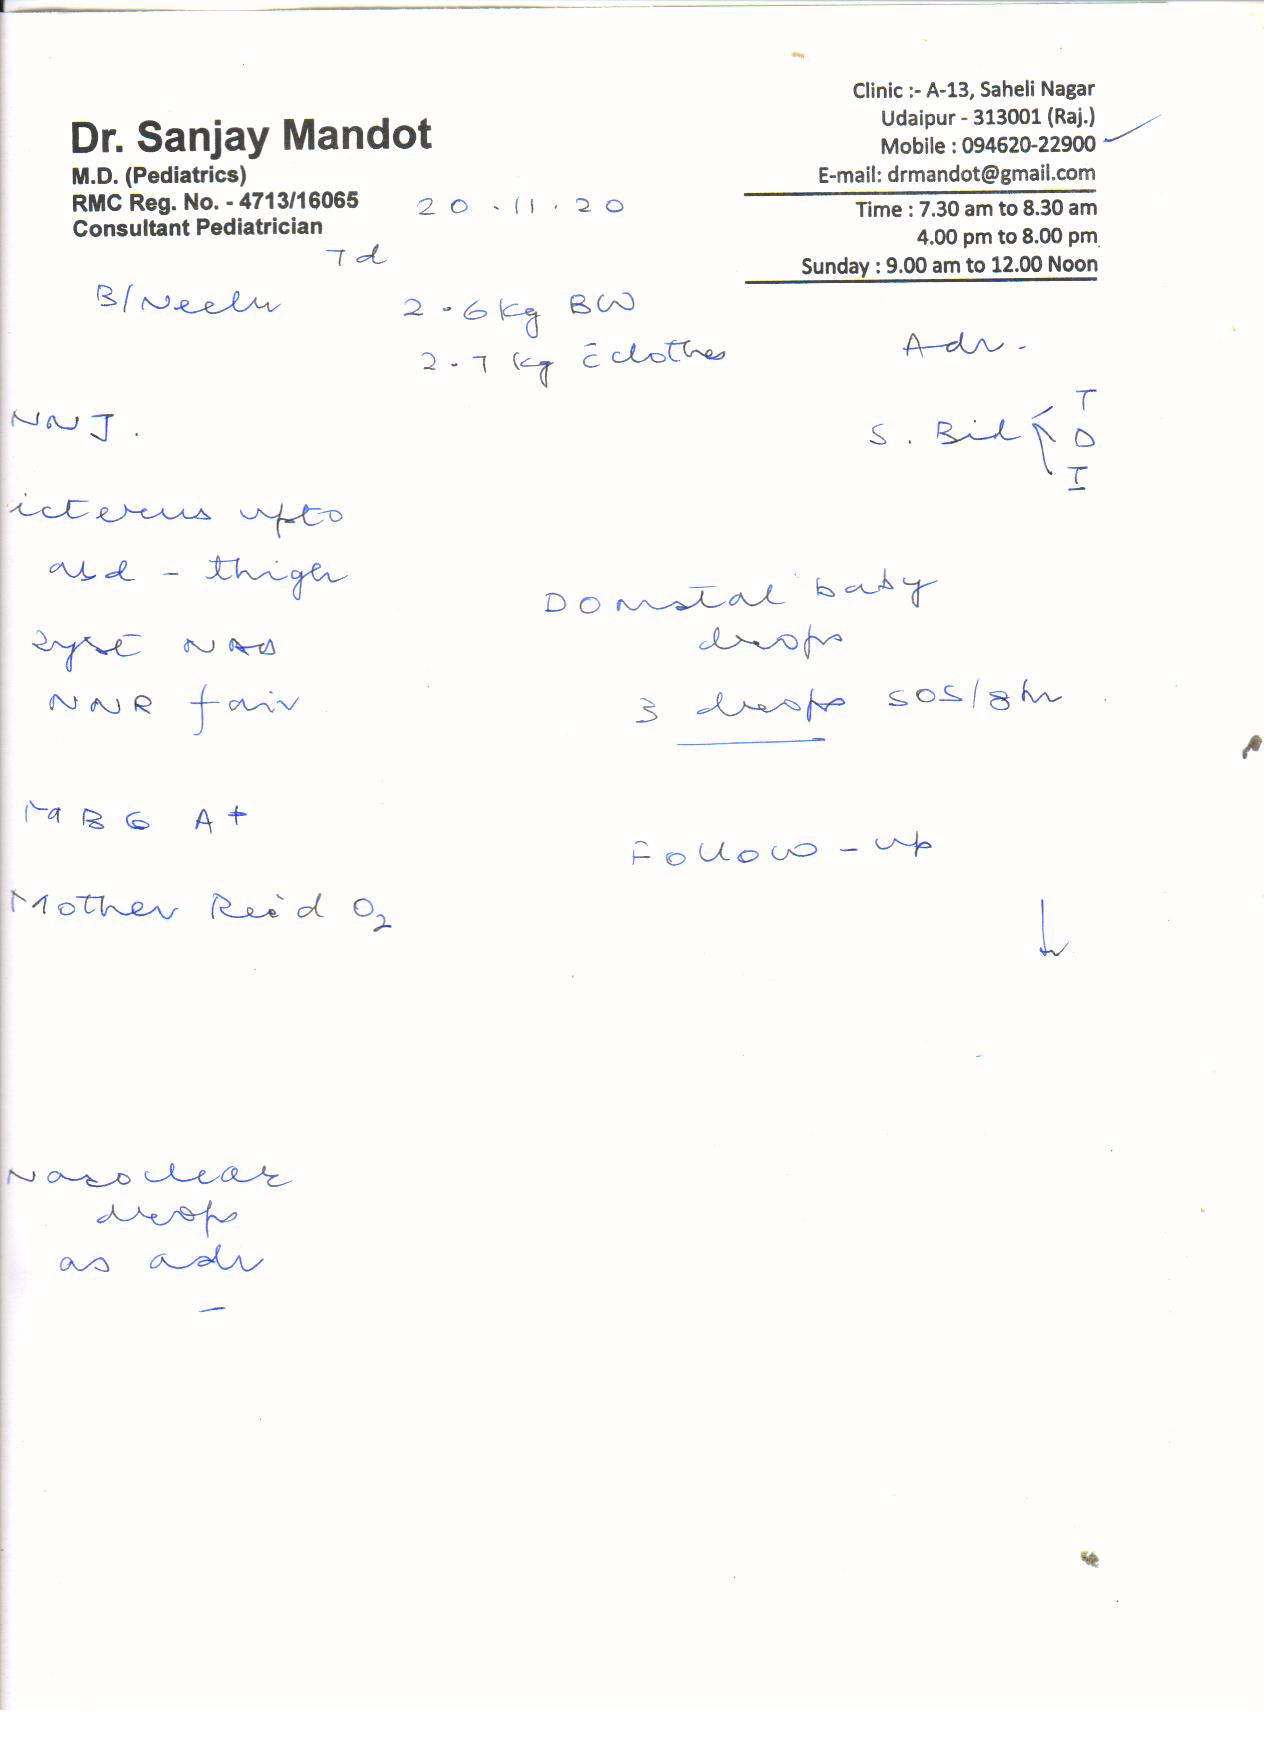 Dr. Sanjay Mandot
M.D. (Pediatrics)
RMC Reg. No. - 4713/16065
Consultant Pediatrician
Clinic :- A-13, Saheli Nagar
Udaipur - 313001 (Raj.)
Mobile : 094620-22900
E-mail: drmandot@gmail.com
Time : 7.30 am to 8.30 am
4.00 pm to 8.00 pm
Sunday : 9.00 am to 12.00 Noon
20.11.20
7d
B/Neelu
2.6 kg BW
2.7 kg c̄ clothes
NNJ.
icterus upto
abd - thigh
NAD
NNR fair
MBG A+
Mother Rec'd O2
Nasoclear
drops
as adv
Adv.
S. Bil T
D
I
Domstal baby
drops
3 drops SOS/8hr
Follow-up